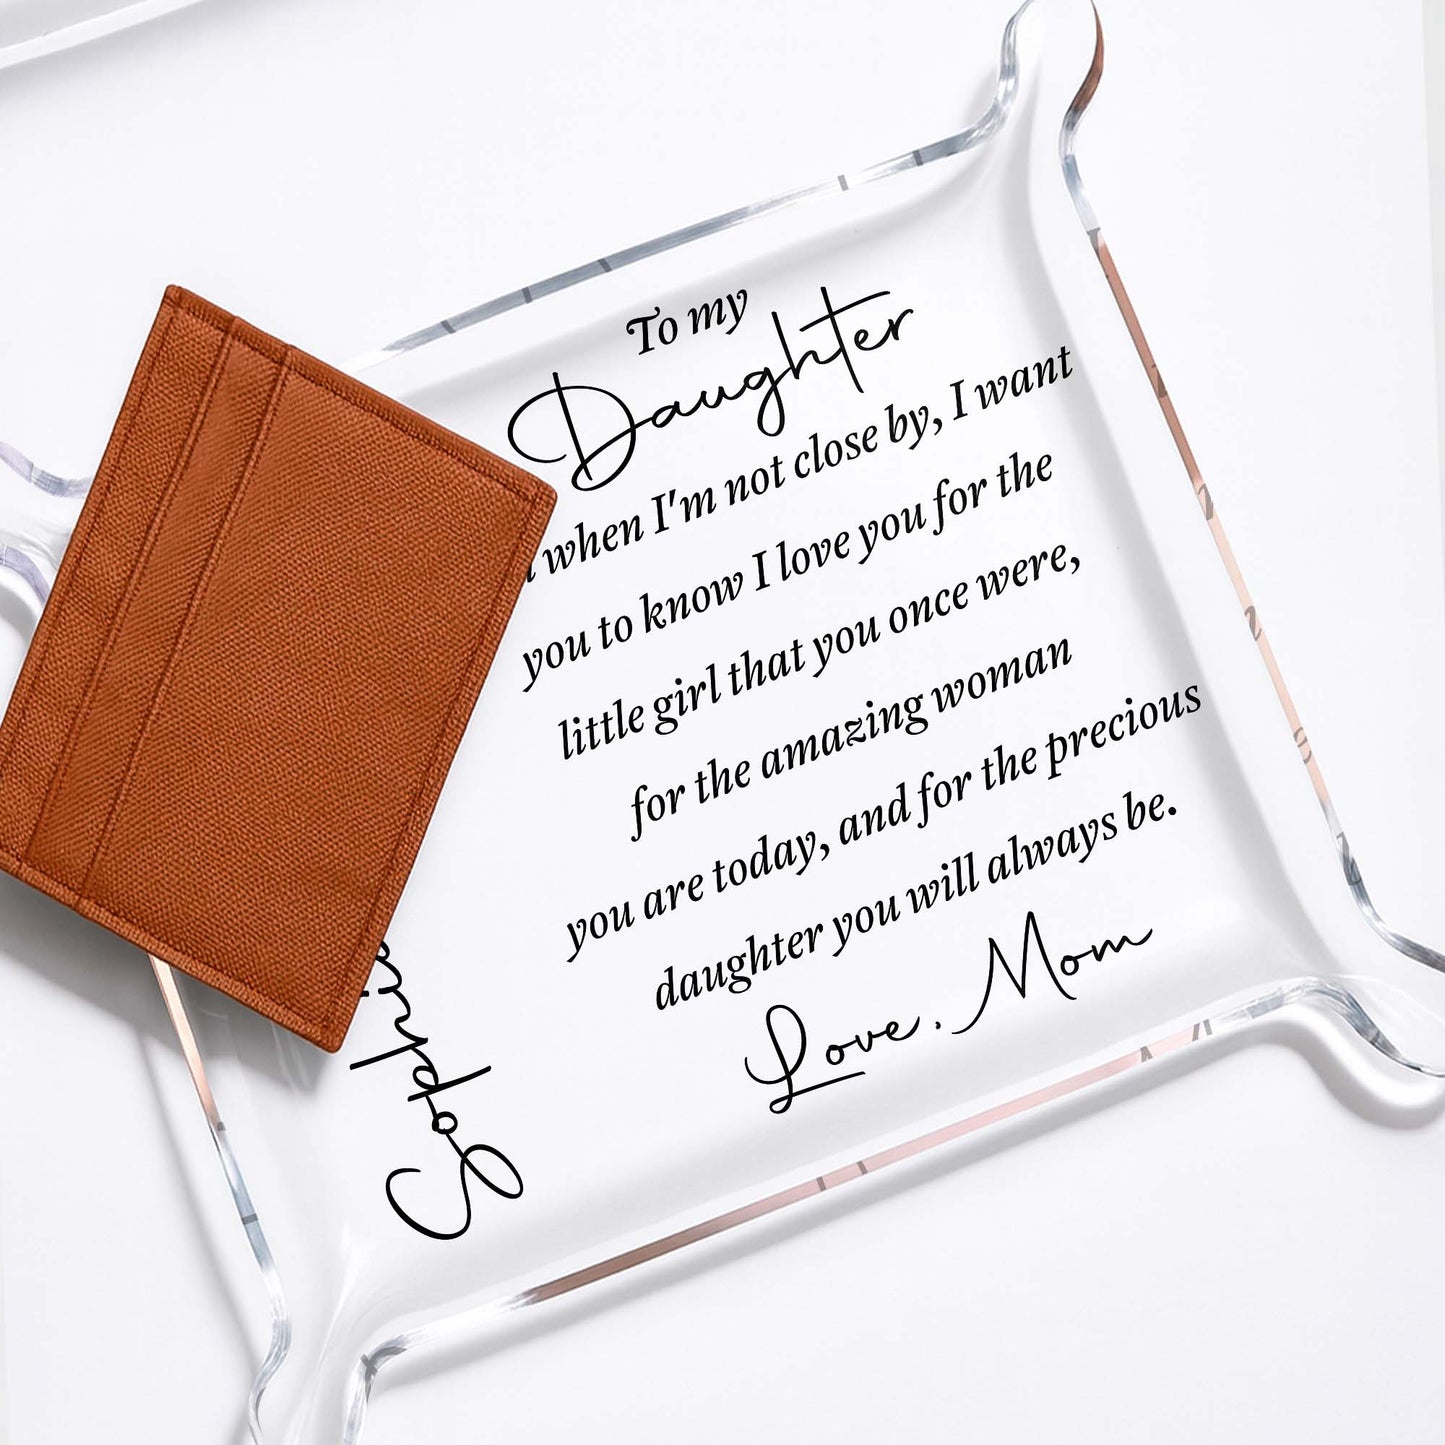 To my
Daughter
when I'm not close by, I want
you to know I love you for the
little girl that you once were,
for the amazing woman
you are today, and for the precious
daughter you will always be.
Love, Mom